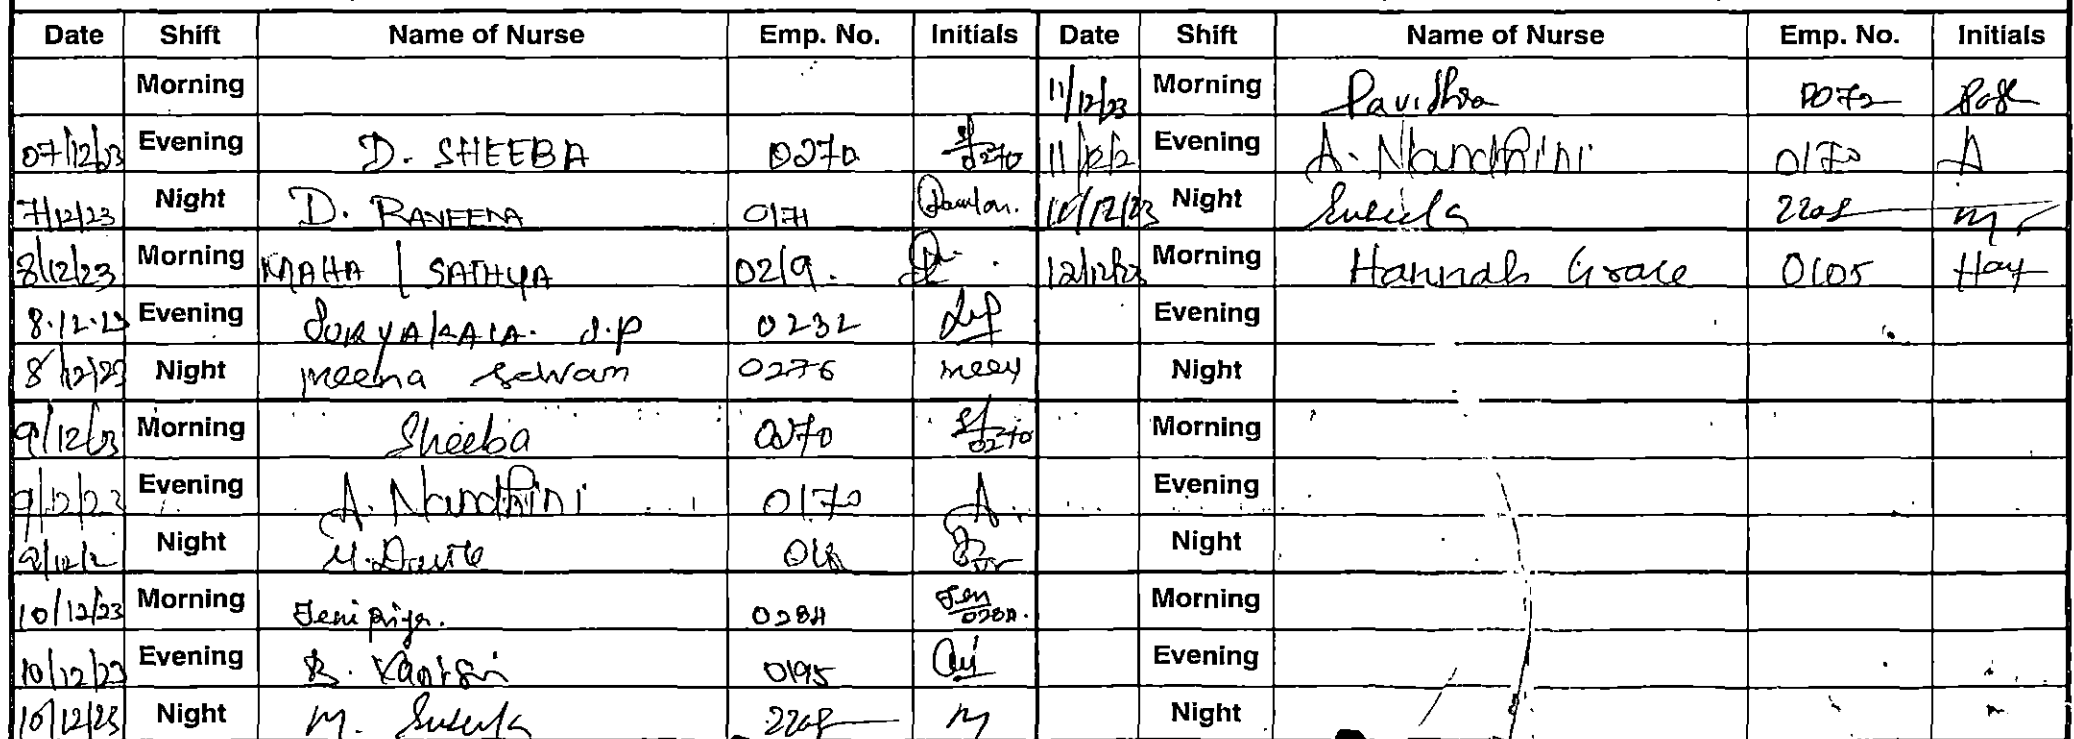 Date Shift Name of Nurse Emp. No. Initials Date Shift Name of Nurse Emp. No. Initials
Morning 11/12/23 Morning Pavidhra
07/12/23 Evening D. SHEEBA 0270 0270 Evening A. Nandhini 0170 A
7/12/23 Night D. RAVEENA 0171 Night 2208 M
8/12/23 Morning MAHA / SATHYA 0219. 12/12/23 Morning Hannah Grace 0105
8.12.23 Evening SURYAKALA. S.P 0232 Evening
8/12/23 Night meena selvam 0276 Night
9/12/23 Morning Sheeba 0270 0270 Morning
9/12/23 Evening A. Nandhini 0170 A. Evening
Night Night
10/12/23 Morning Jenipriya. 0284 Jen 0284. Morning
10/12/23 Evening 0195 Evening
10/12/23 Night M. 2208 M Night